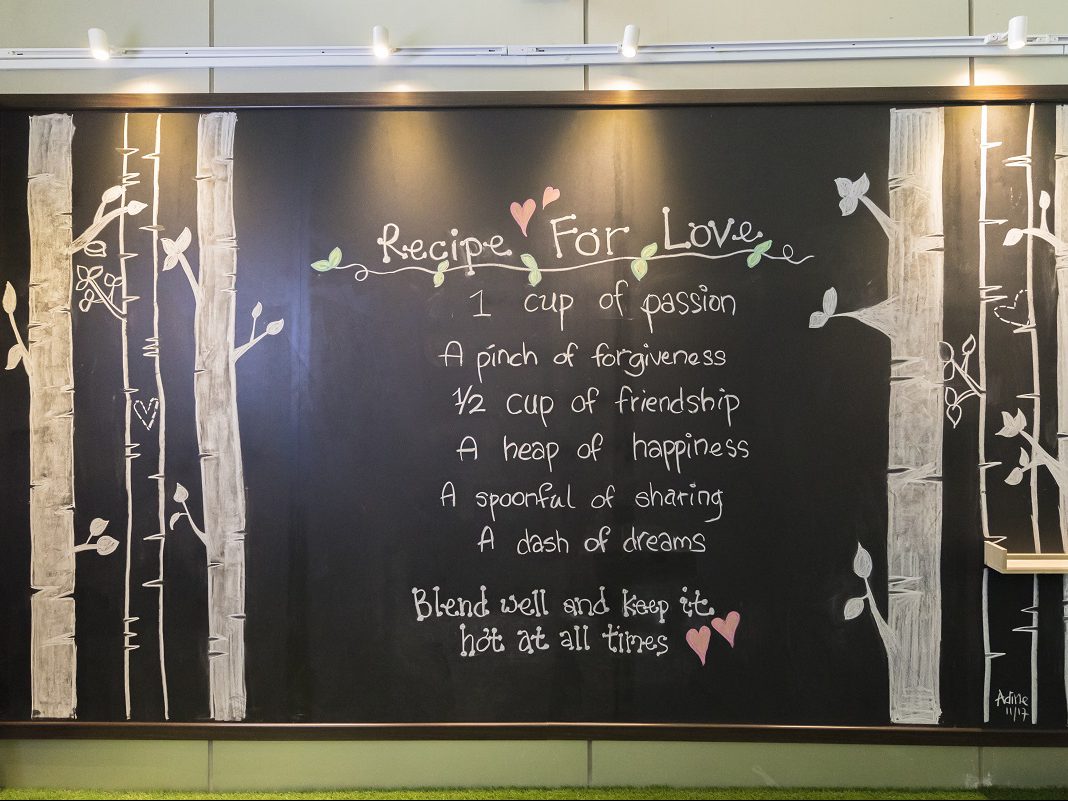 Recipe For Love
1 cup of passion
A pinch of forgiveness
1/2 cup of friendship
A heap of happiness
A spoonful of sharing
A dash of dreams
Blend well and keep it
hot at all times
Adine
11/17